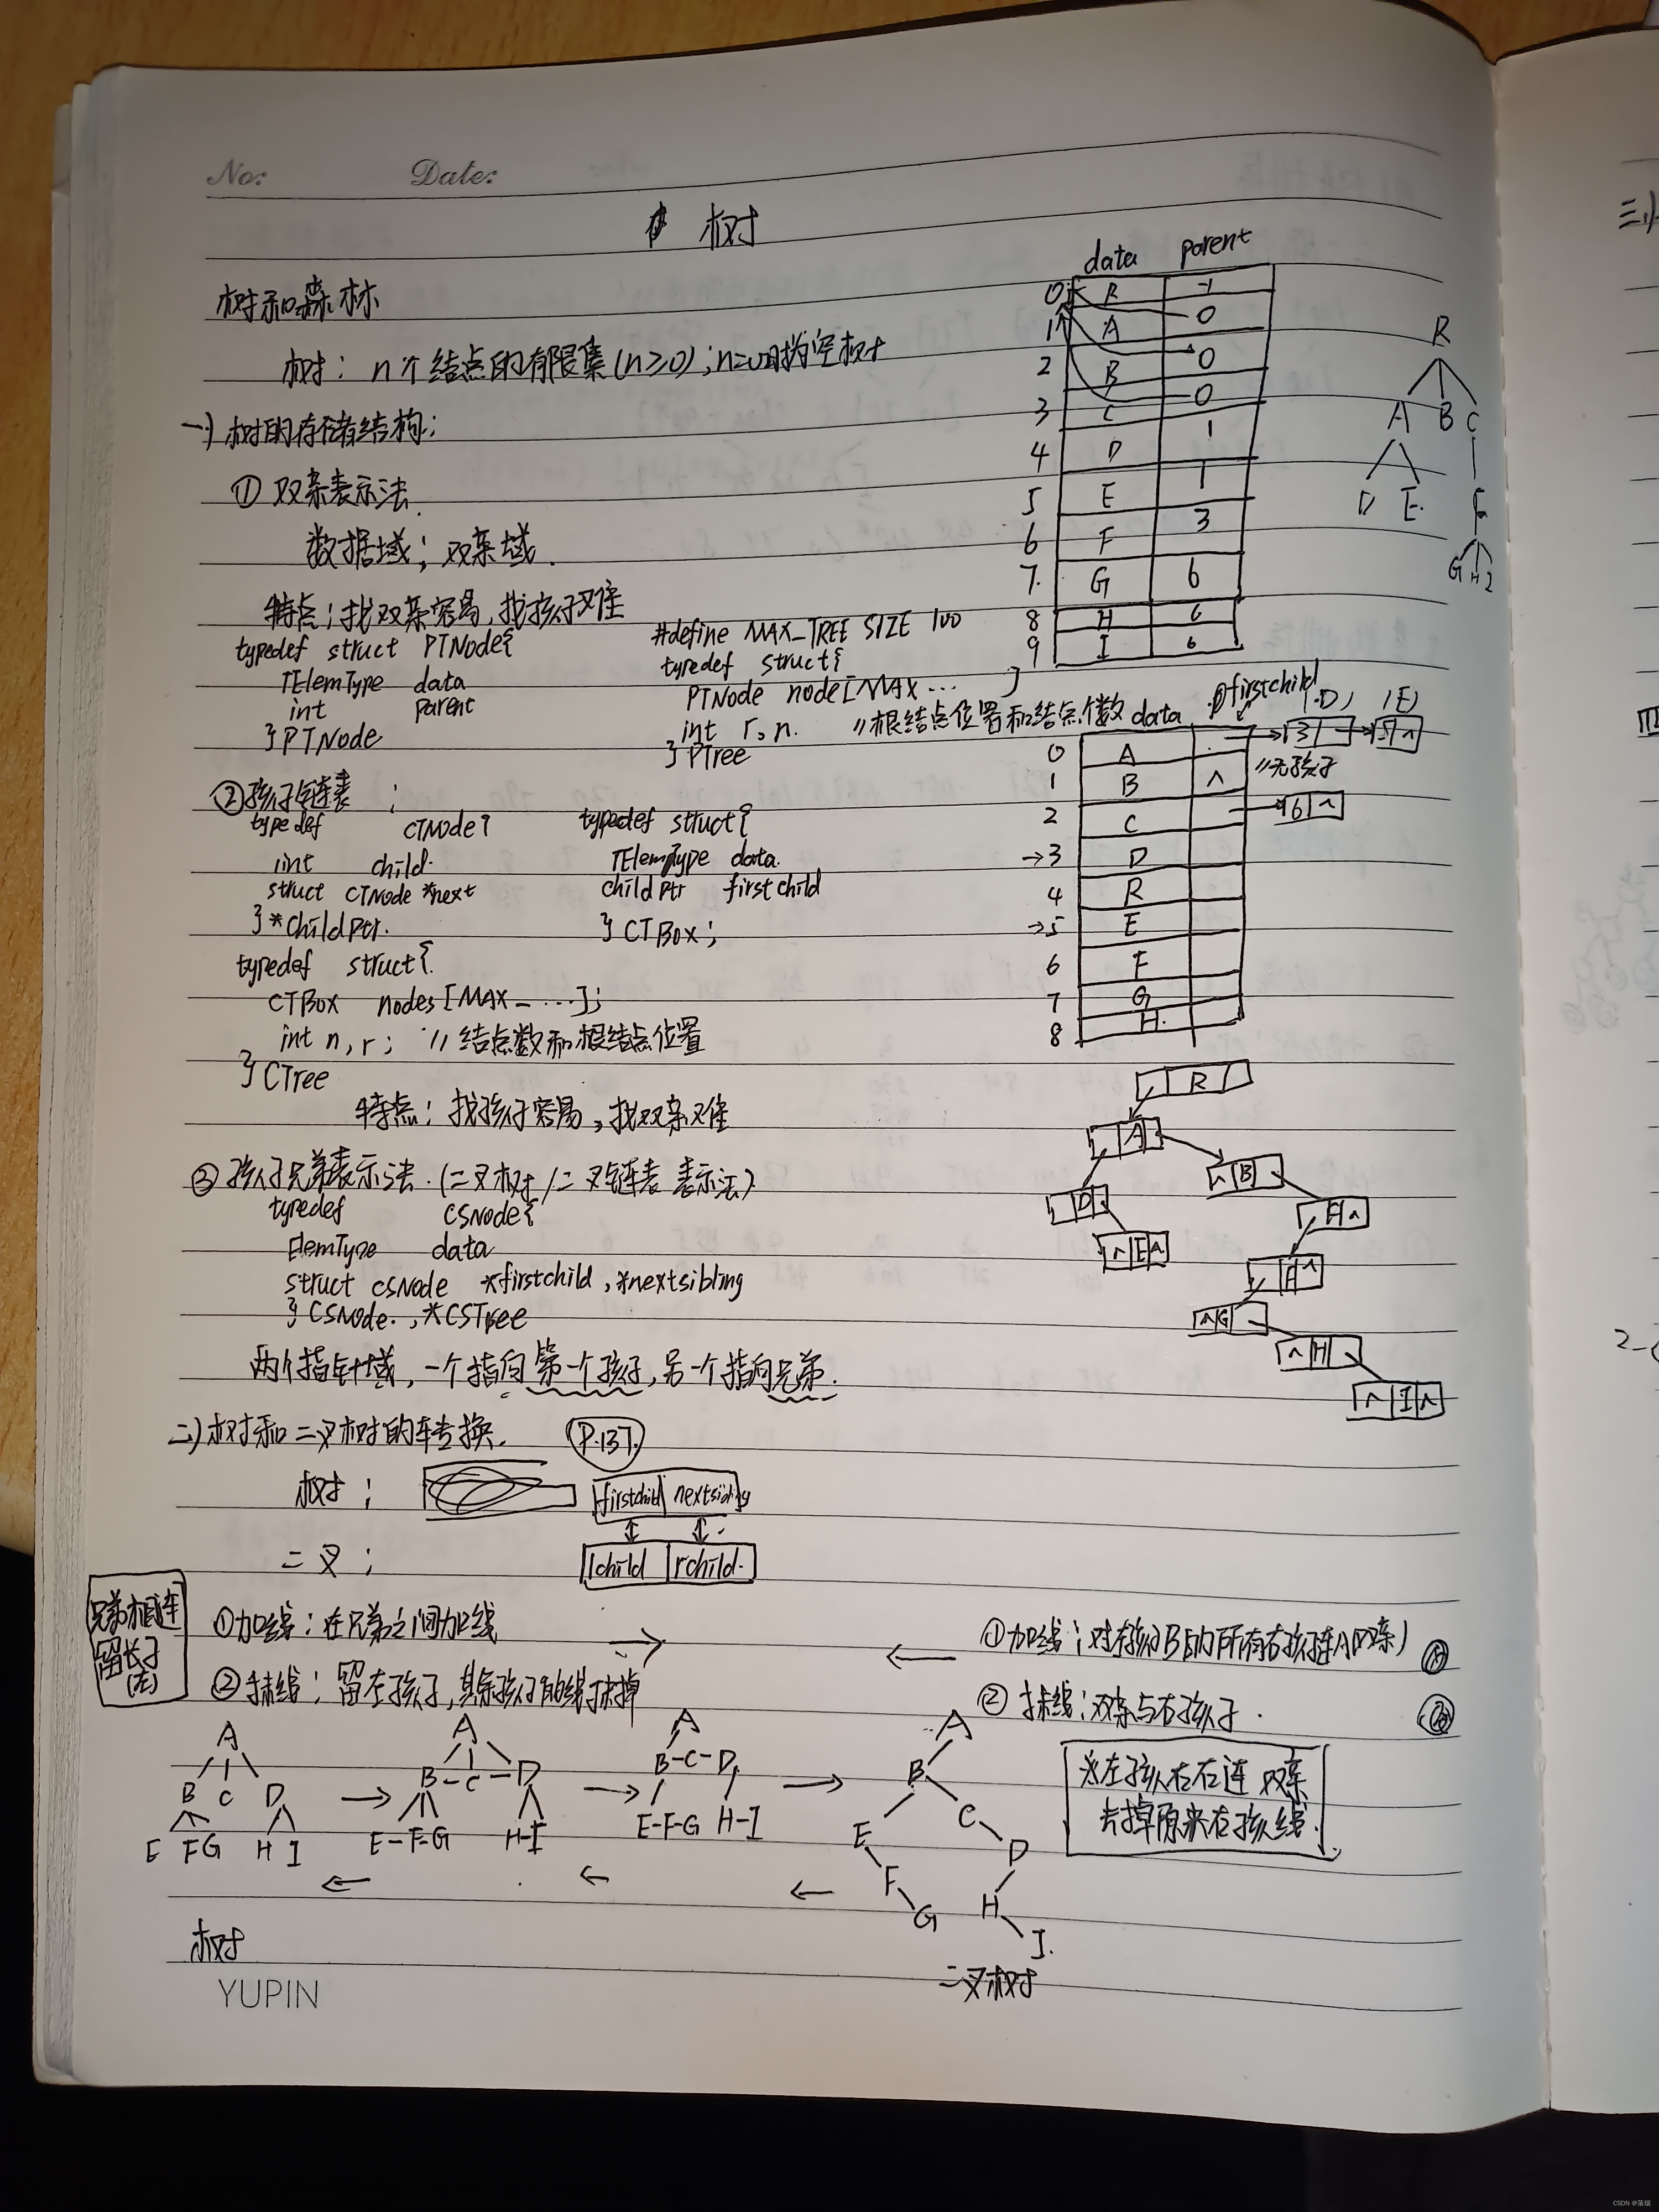 No: Date:
树
树和森林
树: n个结点的有限集(n≥0);n=0时为空树
一)树的存储结构:
① 双亲表示法.
数据域; 双亲域.
特点:找双亲容易,找孩子难
typedef struct PTNode{
TElemType data
int parent
}PTNode
#define MAX_TREE SIZE 100
typedef struct{
PTNode node[MAX ... ]
int r,n. //根结点位置和结点个数
}PTree
data parent
0 R -1
1 A 0
2 B 0
3 C 0
4 D 1
5 E 1
6 F 3
7. G 6
8 H 6
9 I 6
R
A B C
D E. F
G H I
②孩子链表 ;
typedef CTNode{
int child.
struct CTNode *next
}*ChildPtr.
typedef struct{
TElemType data.
childPtr firstchild
}CTBox;
typedef struct{.
CTBox nodes[MAX_ ...];
int n,r; //结点数和根结点位置
}CTree
特点:找孩子容易,找双亲难
data firstchild (D) (E)
0 A 3 5 ^
1 B ^ //无孩子
2 C 6 ^
→3 D
4 R
→5 E
6 F
7 G
8 H.
③孩子兄弟表示法.(二叉树/二叉链表 表示法)
typedef CSNode{
ElemType data
struct CSNode *firstchild,*nextsibling
}CSNode.,*CSTree
两个指针域,一个指向第一个孩子,另一个指向兄弟.
R
A
^ B
D
^ E ^
^ G
^ H
^ I ^
二)树和二叉树的转换. P.137.
树; firstchild nextsibling
二叉; lchild rchild.
兄弟相连
留长子
(左)
①加线:在兄弟之间加线 →
②抹线:留左孩子,其余孩子的线抹掉
← ①加线;对左孩子B的所有右孩子连A(双亲)
② 抹线;双亲与右孩子.
※左孩右右连双亲
去掉原来右孩线.
A A A A
B C D → B-C-D → B-C-D →
E F G H I E-F-G H-I E-F-G H-I
B
E C
F D
G H
I.
← ← ←
树
二叉树
YUPIN
CSDN @落烟